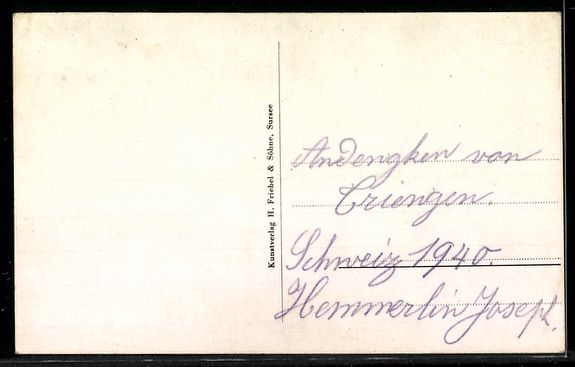 Kunstverlag H. Friebel & Söhne, Sursee
Andengken von
Triengen.
Schweiz 1940.
Hemmerlin Joseph.